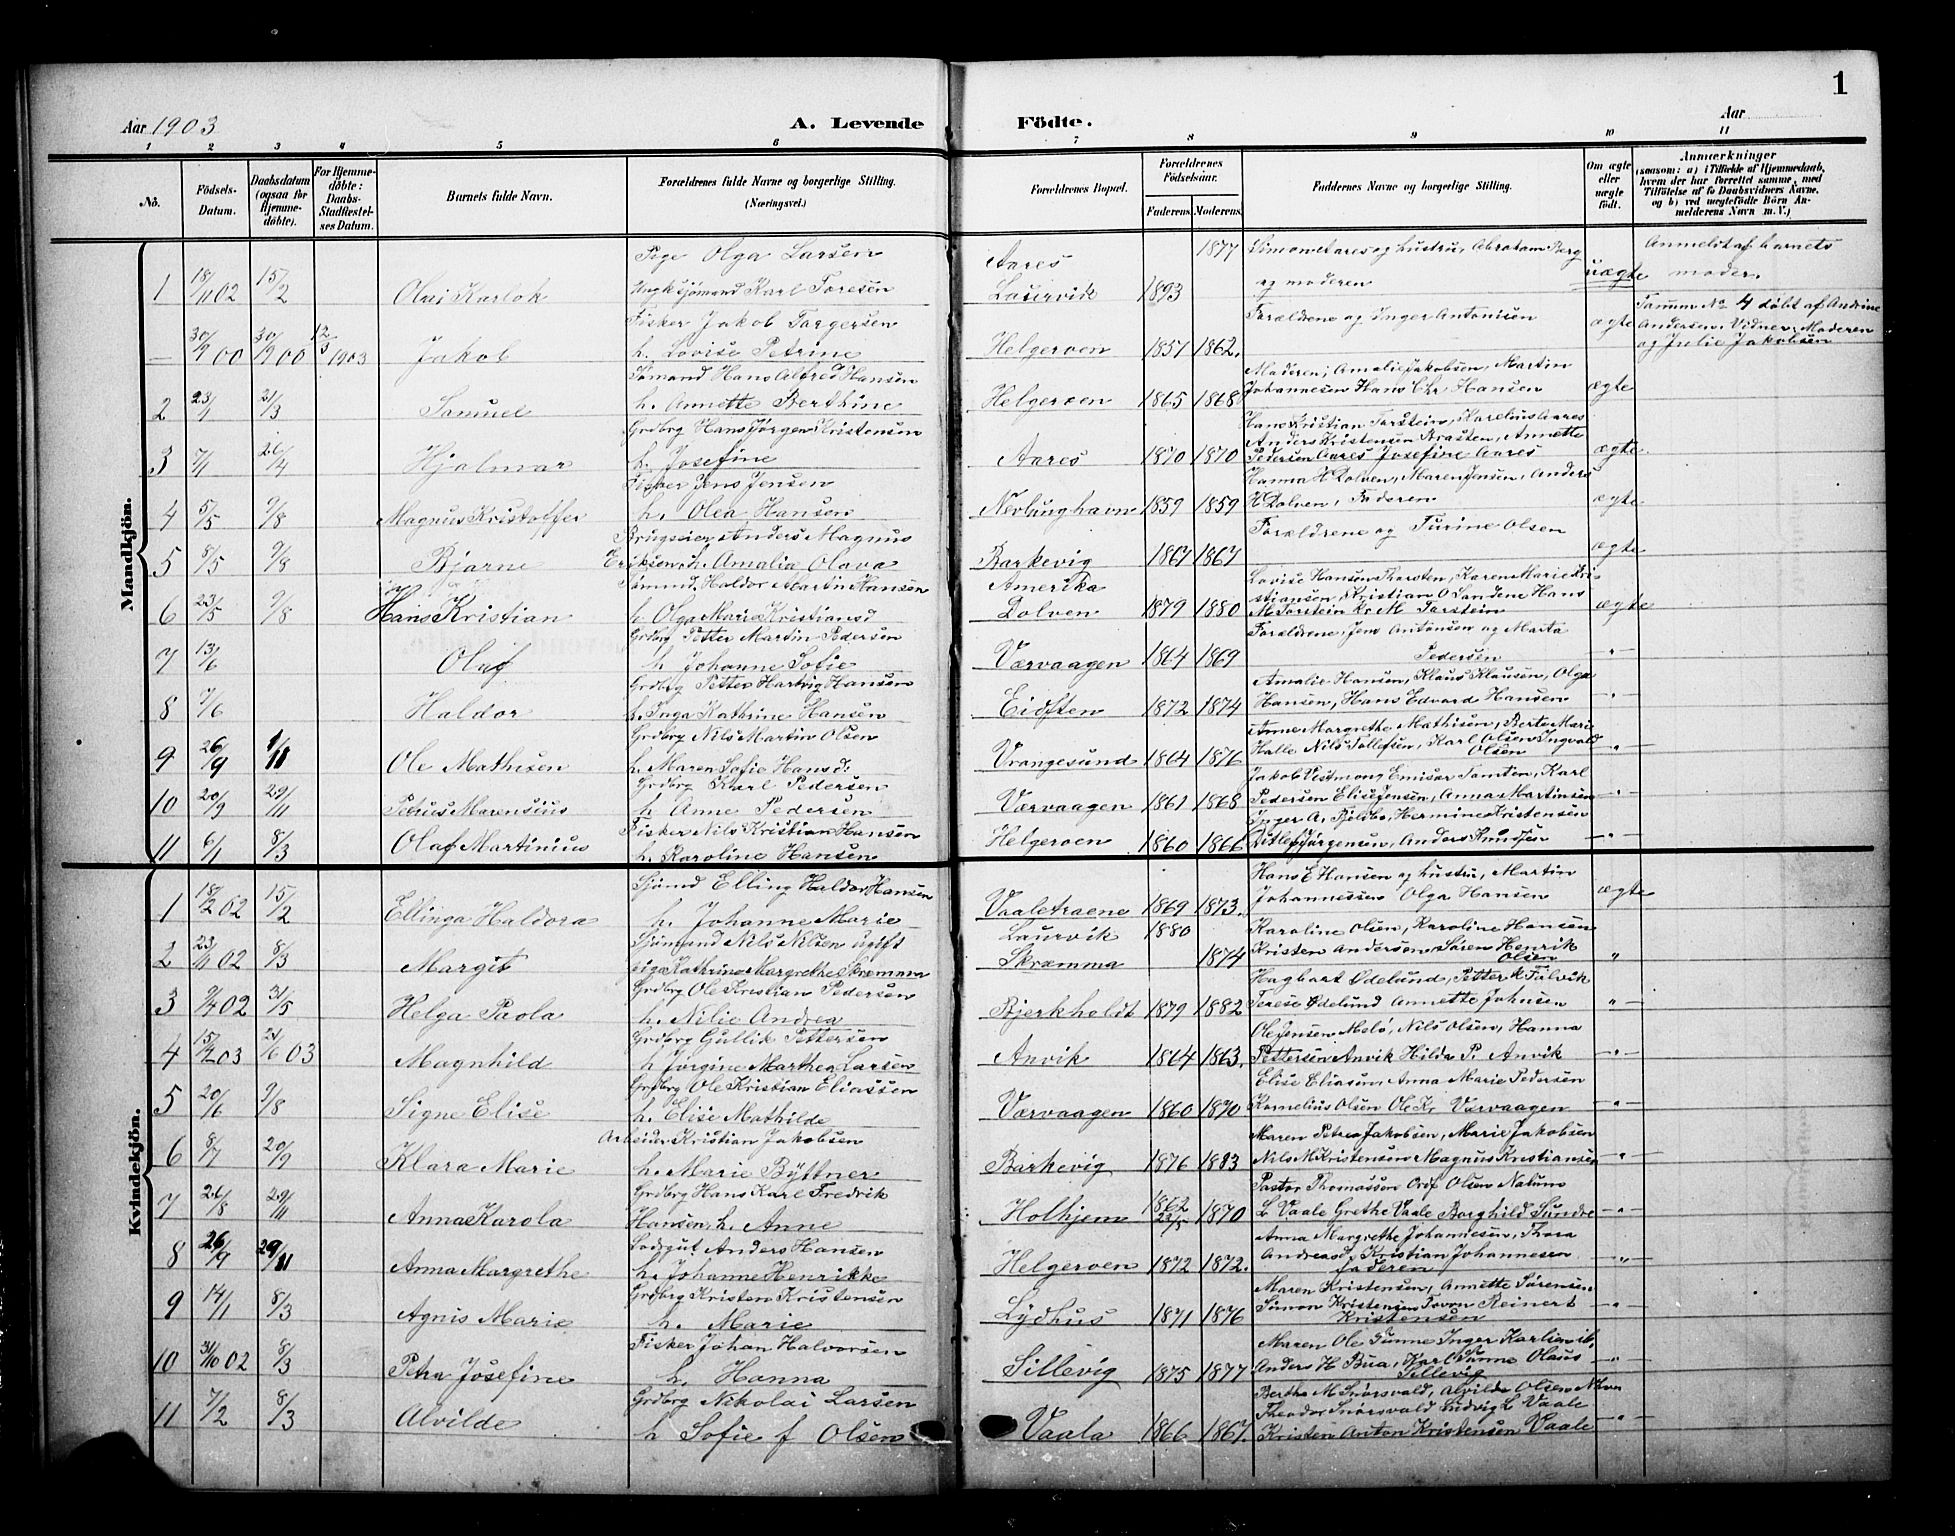 1
Aar 1903
A. Levende Födte.
Aar
1 2 3 4 5 6 7 8 9 10 11
No.
Födsels-Datum.
Daabsdatum (ogsaa for Hjemmedöbte).
For Hjemmedöbte: Daabs-Stadfæstelses Datum.
Barnets fulde Navn.
Forældrenes fulde Navne og borgerlige Stilling.
(Næringsvei.)
Forældrenes Bopæl.
Forældrenes Födselsaar.
Faderens. Moderens.
Faddernes Navne og borgerlige Stilling.
Om ægte eller uægte födt.
Anmærkninger
(saasom: a) i Tilfælde af Hjemmedaab, hvem der har forrettet samme, med Tilföielse af to Daabsvidners Navne, og b) ved uægtefödte Börn Anmelderens Navn m. V.)
Mandkjön.
Pige Olga Larsen Aares 1877 Simon Aares og hustru, Abraham Berg Anmeldt af barnets
1 18/11 02 15/2 Olai Karlok Ungk sjømand Karl Toresen Laurvik 1893 og moderen uægte moder.
Fisker Jakob Torgersen Forældrene og Inger Antonisen Tamm No 4 döbt af Andrine
– 30/9 00 30/9 00 12/3 1903 Jakob h. Lovise Petrine Helgeroen 1857 1862. ægte Andersen, Vidner, Moderen og Julie Jakobsen
Sömand Hans Alfred Hansen Moderen, Amalie Jakobsen, Martin
2 23/1 21/3 Samuel h. Annette Berthine Helgeroen 1865 1868 Johannesen Hans Chr Hansen ægte
Grdbrg Hans Jørgen Kristensen Hans Kristian Torstein, Karelius Aares Anders Kristensen Brasten, Annette
3 7/1 26/4 Hjalmar h. Josefine Aares 1870 1870 Pedersen Aares Josefine Aares ægte
Fisker Jens Jensen Hanna H Dolven, Maren Jensen, Anders
4 5/5 9/8 Magnus Kristoffer h. Olea Hansen Nevlunghavn 1859 1859 H Dolven, Faderen ægte
Brugseier Anders Magnus Forældrene og Turine Olsen
5 8/5 9/8 Bjarne Eriksen, h. Amalia Olava Barkevig 1867 1867 ægte
Sömand. Haldor Martin Hansen Amerika Lovise Hansen Thorsten, Karen Marie Kristiansen, Kristian O Sandene Hans
6 23/5 9/8 Hans Kristian h Olga Marie Kristiansd Dolven 1879 1880 M Torstein Kr. M Torstein ægte
Grdbrg Petter Martin Pedersen Forældrene, Jens Antonsen og Marta
7 13/6 Olaf h. Johanne Sofie Værvaagen 1864 1869 Pedersen – " –
Grdbrg Petter Hartvig Hansen Amalie Hansen, Klaus Klausen, Olga
8 7/6 Haldor h. Inga Kathrine Hansen Eidsten 1872 1874 Hansen, Hans Edvard Hansen – " –
Grdbrg Nils Martin Olsen Anne Margrethe Mathisen, Berte Marie
9 26/9 1/11 Ole Mathisen h. Maren Sofie Hansd: Vrangesund 1864 1876 Halle Nils Tollefsen, Karl Olsen Ingvald Olsen – " –
Grdbrg Karl Pedersen Jakob Vestmong Emisar Tomten, Karl
10 20/9 29/11 Petrus Marensius h Anne Pedersen Værvaagen 1861 1868 Pedersen Elise Jensen, Anna Martinsen – " –
Fisker Nils Kristian Hansen Inger A. Hermine Kristensen
11 6/1 8/3 Olaf Martinius h. Karoline Hansen Helgeroen 1860 1866 Ditlef Jørgensen, Anders Knudsen – " –
Kvindekjön.
Sjømd Elling Haldor Hansen Hans E Hansen og hustru, Martin
1 18/2 02 15/2 Ellinga Haldora h. Johanne Marie Vaaletraene 1869 1873. Johannessen Olga Hansen ægte
Sjömand Nils Nilsen ugift Laurvik 1880 Karoline Olsen, Karoline Hansen
2 23/11 02 8/3 Margit pige Kathrine Margrethe Skræmma Skræmma 1874 Kristen Andersen, Søren Henrik Olsen "
Grdbrg Ole Kristian Pedersen Hagbart Ødelund, Petter K Tolvik
3 9/7 02 31/5 Helga Paola h. Nilie Andrea Bjerkholdt 1879 1882 Terese Ødelund Annette Johnsen " –
Grdbrg Gullik Pettersen Ole Jensen Melö, Nils Olsen, Hanna
4 15/2 03 21/6 03 Magnhild h Jorgine Marthea Larsen Anvik 1864 1863. Pettersen Anvik Hilda P. Anvik – " –
Grdbrg Ole Kristian Eliassen Elise Eliasen, Anna Marie Pedersen
5 20/6 9/8 Signe Elise h. Elise Mathilde Værvaagen 1860 1870 Kornelius Olsen Ole K. Værvaagen – " –
Arbeider Kristian Jakobsen Maren Petrea Jakobsen, Marie Jakobsen
6 8/7 20/9 Klara Marie h. Marie Byttner Barkevig 1876 1883 Nils M Kristensen Magnus Kristiansen – " –
Grdbrg Hans Karl Fredrik Pastor Thomassen Orof Olsen Nalum
7 26/8 29/11 Anna Karola Hansen, h. Anne Holhjem 1862 22/5 1870 L Vaale Grethe Vaale Borghild Sundre – " –
Lodsgut Anders Hansen Anna Margrethe Johannesen, Thora
8 26/9 29/11 Anna Margrethe h. Johanne Henrikke Helgeroen 1872 1872. Andreasd, Kristian Johannesen Faderen – " –
Grdbrg Kristen Kristensen Maren Kristensen, Annette Sörensen
9 14/1 8/3 Agnis Marie h. Marie Lydhus 1871 1876 Simon Kristensen Tovon Reinert Kristensen – " –
Fisker Johan Halvorsen Maren Ole Tunne Inger Karlien ib,
10 31/10 02 8/3 Petra Josefine h. Hanna Sillevig 1875 1877 Anders H Bua, Karl Tunne Olaus Sillevig – " –
Grdbrg Nikolai Larsen Berthe M Snørsvald, Alvilde Olsen
11 7/2 8/3 Alvilde h Sofie f Olsen Vaala 1866 1867. Theodor Snørsvald Ludvig L Vaale – " –
Kristen Anton Kristensen Vaale